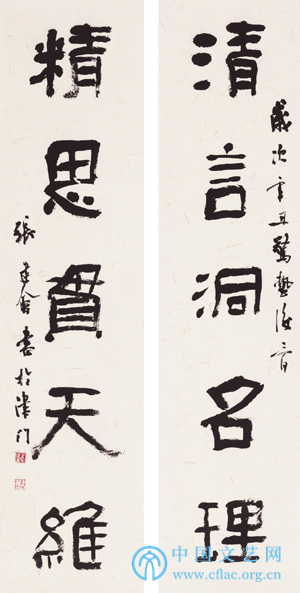 歲次辛丑驚蟄後
清言洞名理
精思貫天維
張建會書於津門
中国文艺网
www.cflac.org.cn